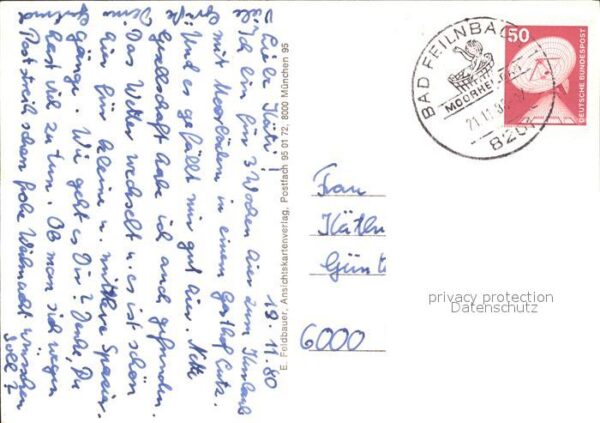 19.11.80
Liebe Käti!
Ich bin für 3 Wochen hier zum Kurlaub
mit Moorbädern in einem Gasthof Cafz.
Und es gefällt mir gut hier. Nette
Gesellschaft habe ich auch gefunden.
Das Wetter wechselt u. es ist schön
hier für kleine u. mittlere Spazier-
gänge. Wie geht es Dir? Denke, Du
hast viel zu tun. Ob man sich wegen
Poststreik schon frohe Weihnacht wünschen
soll?
Viele
Grüße
Deine
E. Feldbauer, Ansichtskartenverlag, Postfach 95 01 72, 8000 München 95
BAD FEILNBACH
MOORHEILBAD
21.11.80
820
50
DEUTSCHE BUNDESPOST
Frau
Käth
Günt
6000
privacy protection
Datenschutz